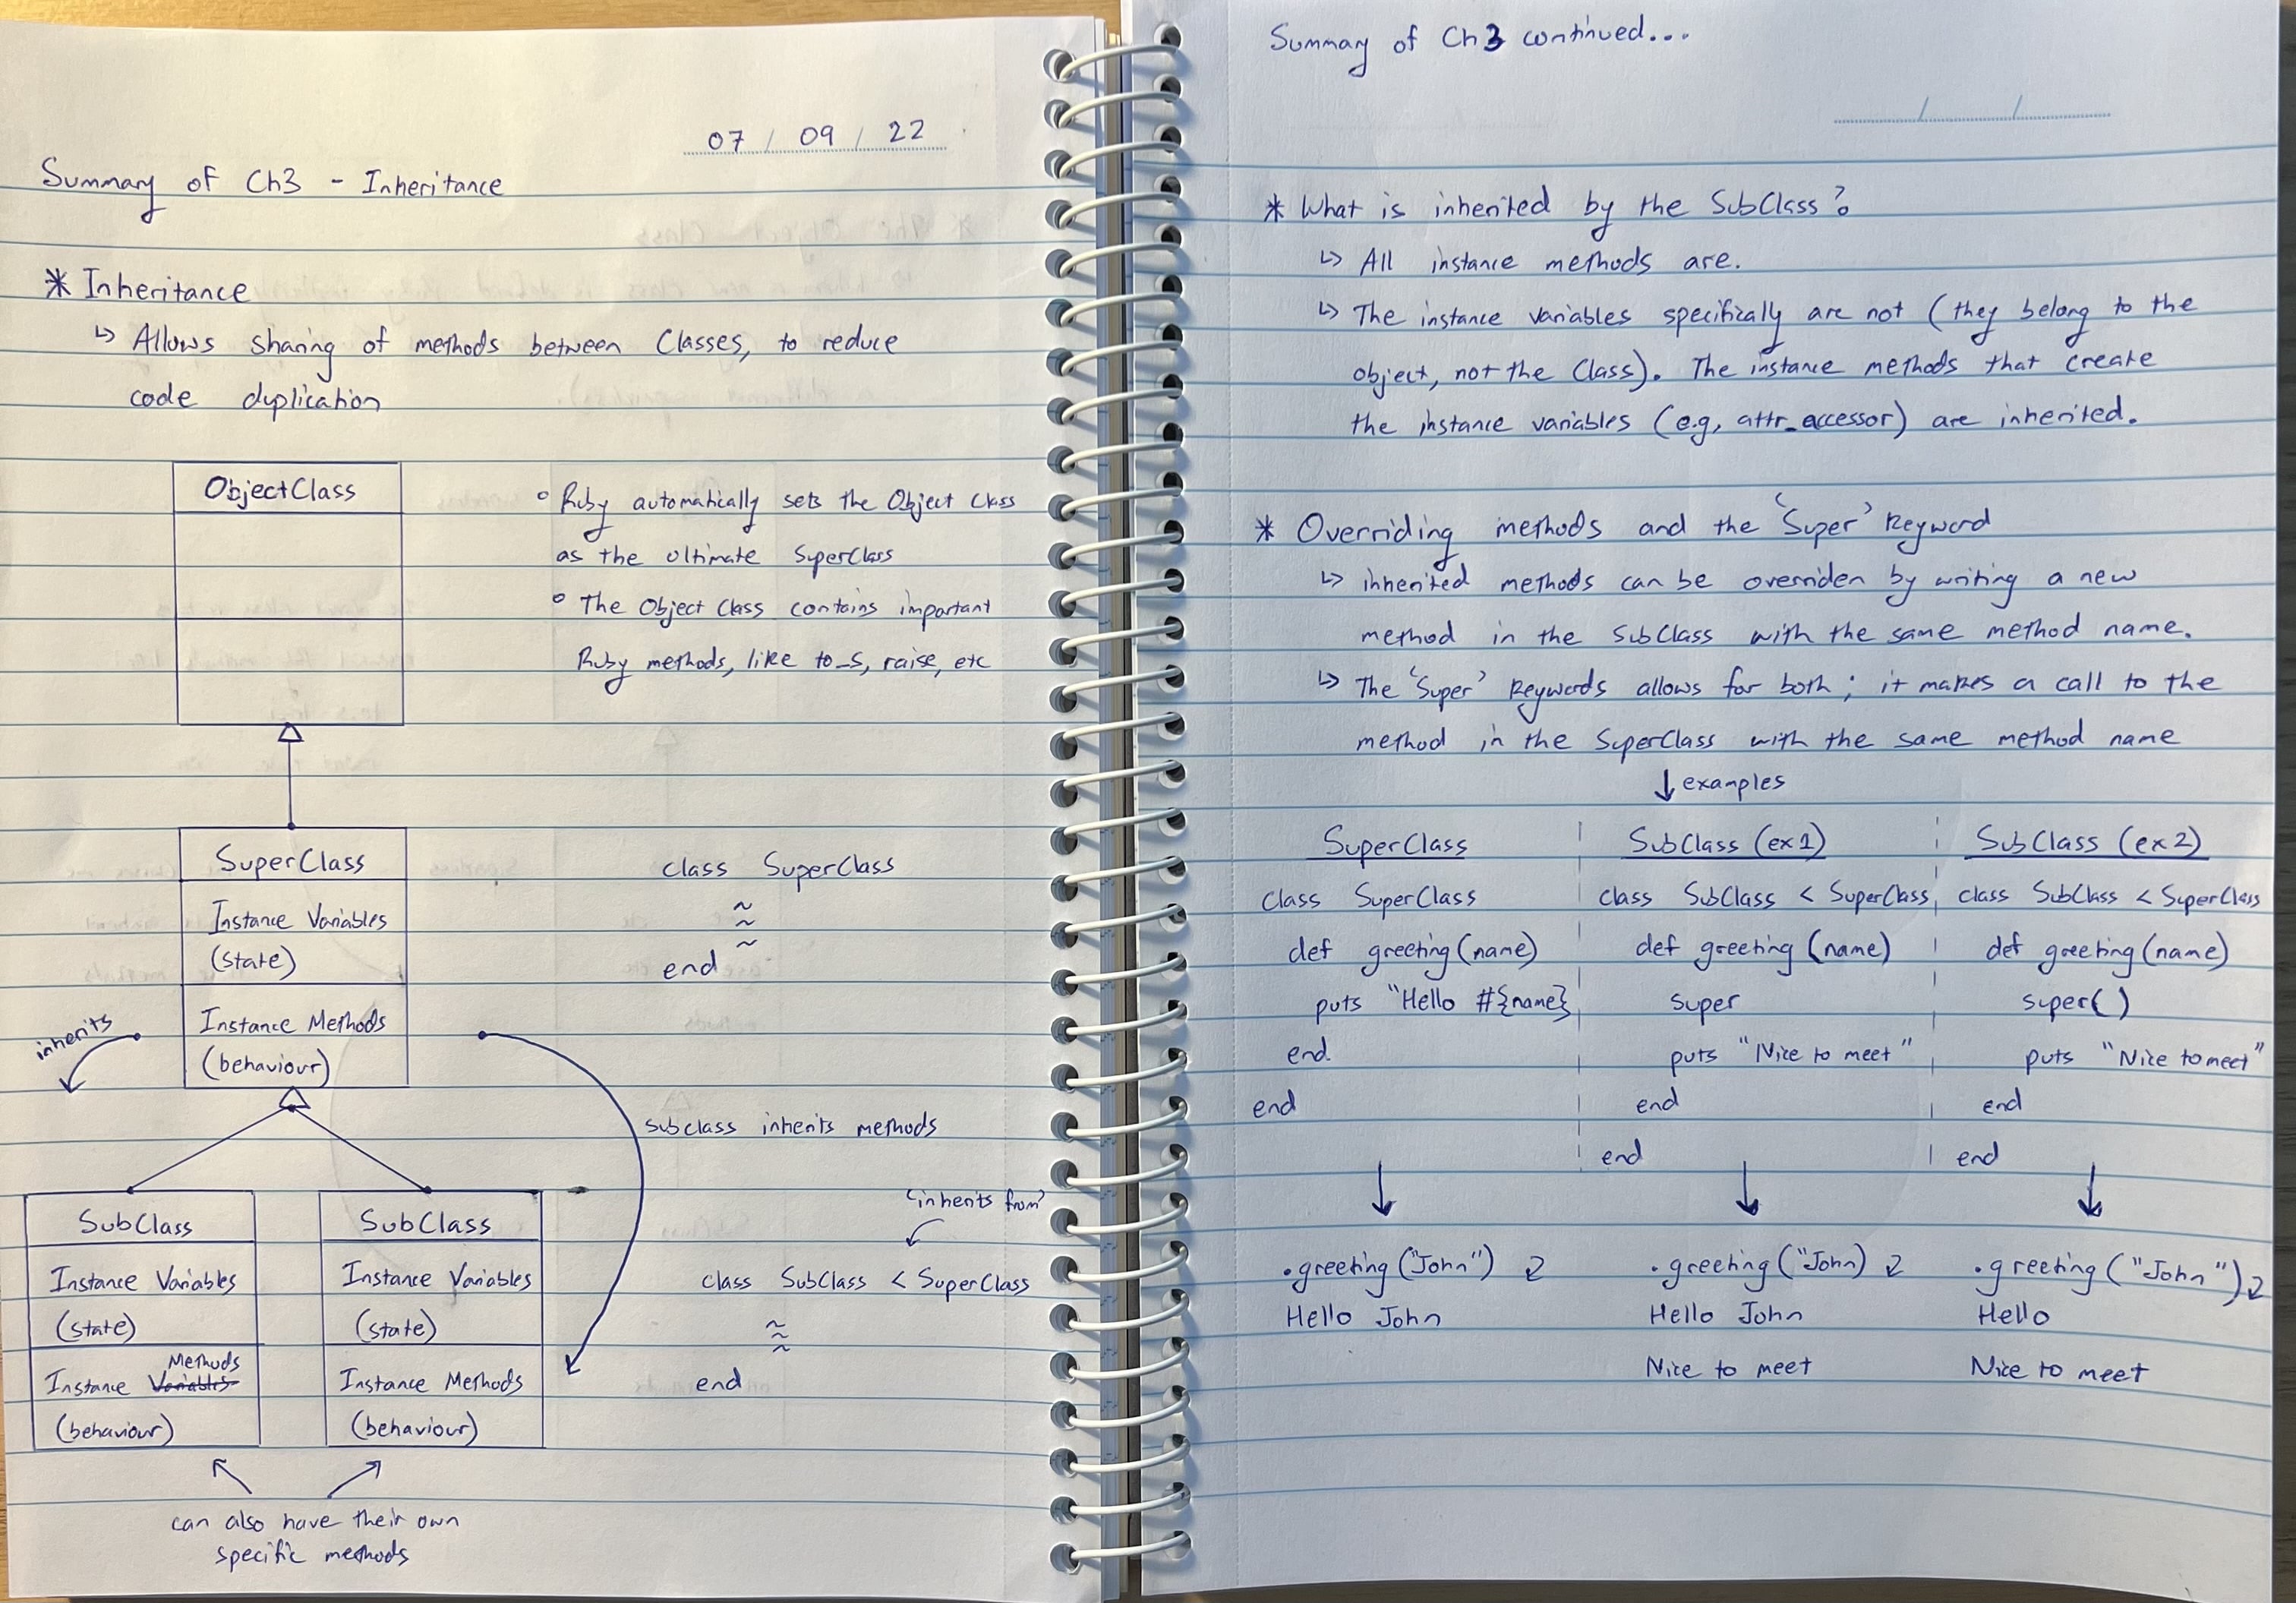 07 / 09 / 22
Summary of Ch3 - Inheritance
* Inheritance
↳ Allows sharing of methods between Classes, to reduce
code duplication
ObjectClass
° Ruby automatically sets the Object Class
as the ultimate SuperClass
° The Object Class contains important
Ruby methods, like to_s, raise, etc
SuperClass
Instance Variables
(state)
Instance Methods
(behaviour)
class SuperClass
~
~
~
end
inherits
subclass inherits methods
SubClass
Instance Variables
(state)
Methods
Instance Variables
(behaviour)
SubClass
Instance Variables
(state)
Instance Methods
(behaviour)
'inherits from'
class SubClass < SuperClass
~
~
~
end
can also have their own
specific methods
Summary of Ch3 continued...
/ /
* What is inherited by the SubClass?
↳ All instance methods are.
↳ The instance variables specifically are not (they belong to the
object, not the Class). The instance methods that create
the instance variables (e.g, attr_accessor) are inherited.
* Overriding methods and the 'Super' keyword
↳ inherited methods can be overriden by writing a new
method in the SubClass with the same method name.
↳ The 'Super' keywords allows for both; it makes a call to the
method in the SuperClass with the same method name
↓ examples
SuperClass
class SuperClass
def greeting(name)
puts "Hello #{name}
end
end
.greeting("John")
Hello John
SubClass (ex1)
class SubClass < SuperClass
def greeting (name)
super
puts "Nice to meet"
end
end
.greeting("John)
Hello John
Nice to meet
SubClass (ex2)
class SubClass < SuperClass
def greeting(name)
super()
puts "Nice to meet"
end
end
.greeting("John")
Hello
Nice to meet